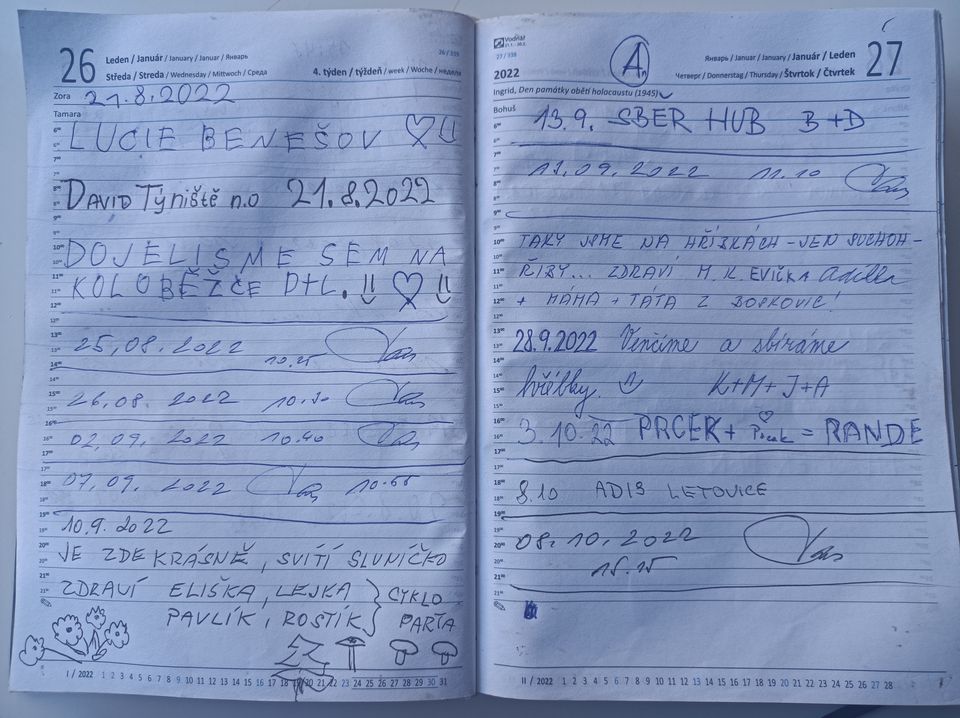 26
Leden / Január / January / Januar / Январь
Středa / Streda / Wednesday / Mittwoch / Среда
26 / 339
4. týden / týždeň / week / Woche / неделя
Zora
21.8.2022
Tamara
LUCIE BENEŠOV
DAVID Týniště n.o 21.8.2022
DOJELI SME SEM NA
KOLOBĚŽCE D+L.
25.08.2022 10.25
26.08.2022
02.09.2022 10.40
07.09.2022
10.9.2022
JE ZDE KRÁSNĚ, SVÍTÍ SLUNÍČKO
ZDRAVÍ ELIŠKA, LEJKA
PAVLÍK, ROSTÍK
CYKLO
PARTA
I / 2022 1 2 3 4 5 6 7 8 9 10 11 12 13 14 15 16 17 18 19 20 21 22 23 24 25 26 27 28 29 30 31
Vodnář
27 / 338
A.
Январь / Januar / January / Január / Leden
27
2022
Четверг / Donnerstag / Thursday / Štvrtok / Čtvrtek
Ingrid, Den památky obětí holocaustu (1945)
Bohuš
13.9. SBER HUB B+D
09.2022 11.10
TAKY JSME NA HŘÍBKÁCH - JEN SUCHOH-
ŘIBY... ZDRAVÍ M.K. EVIČKA
+ MÁMA + TÁTA Z BOSKOVIC!
28.9.2022 Venčíme a sbíráme
hříbky. K+M+J+A
3.10.22 PRCEK + = RANDE
8.10 ADIS LETOVICE
08.10.2022
15.15
II / 2022 1 2 3 4 5 6 7 8 9 10 11 12 13 14 15 16 17 18 19 20 21 22 23 24 25 26 27 28